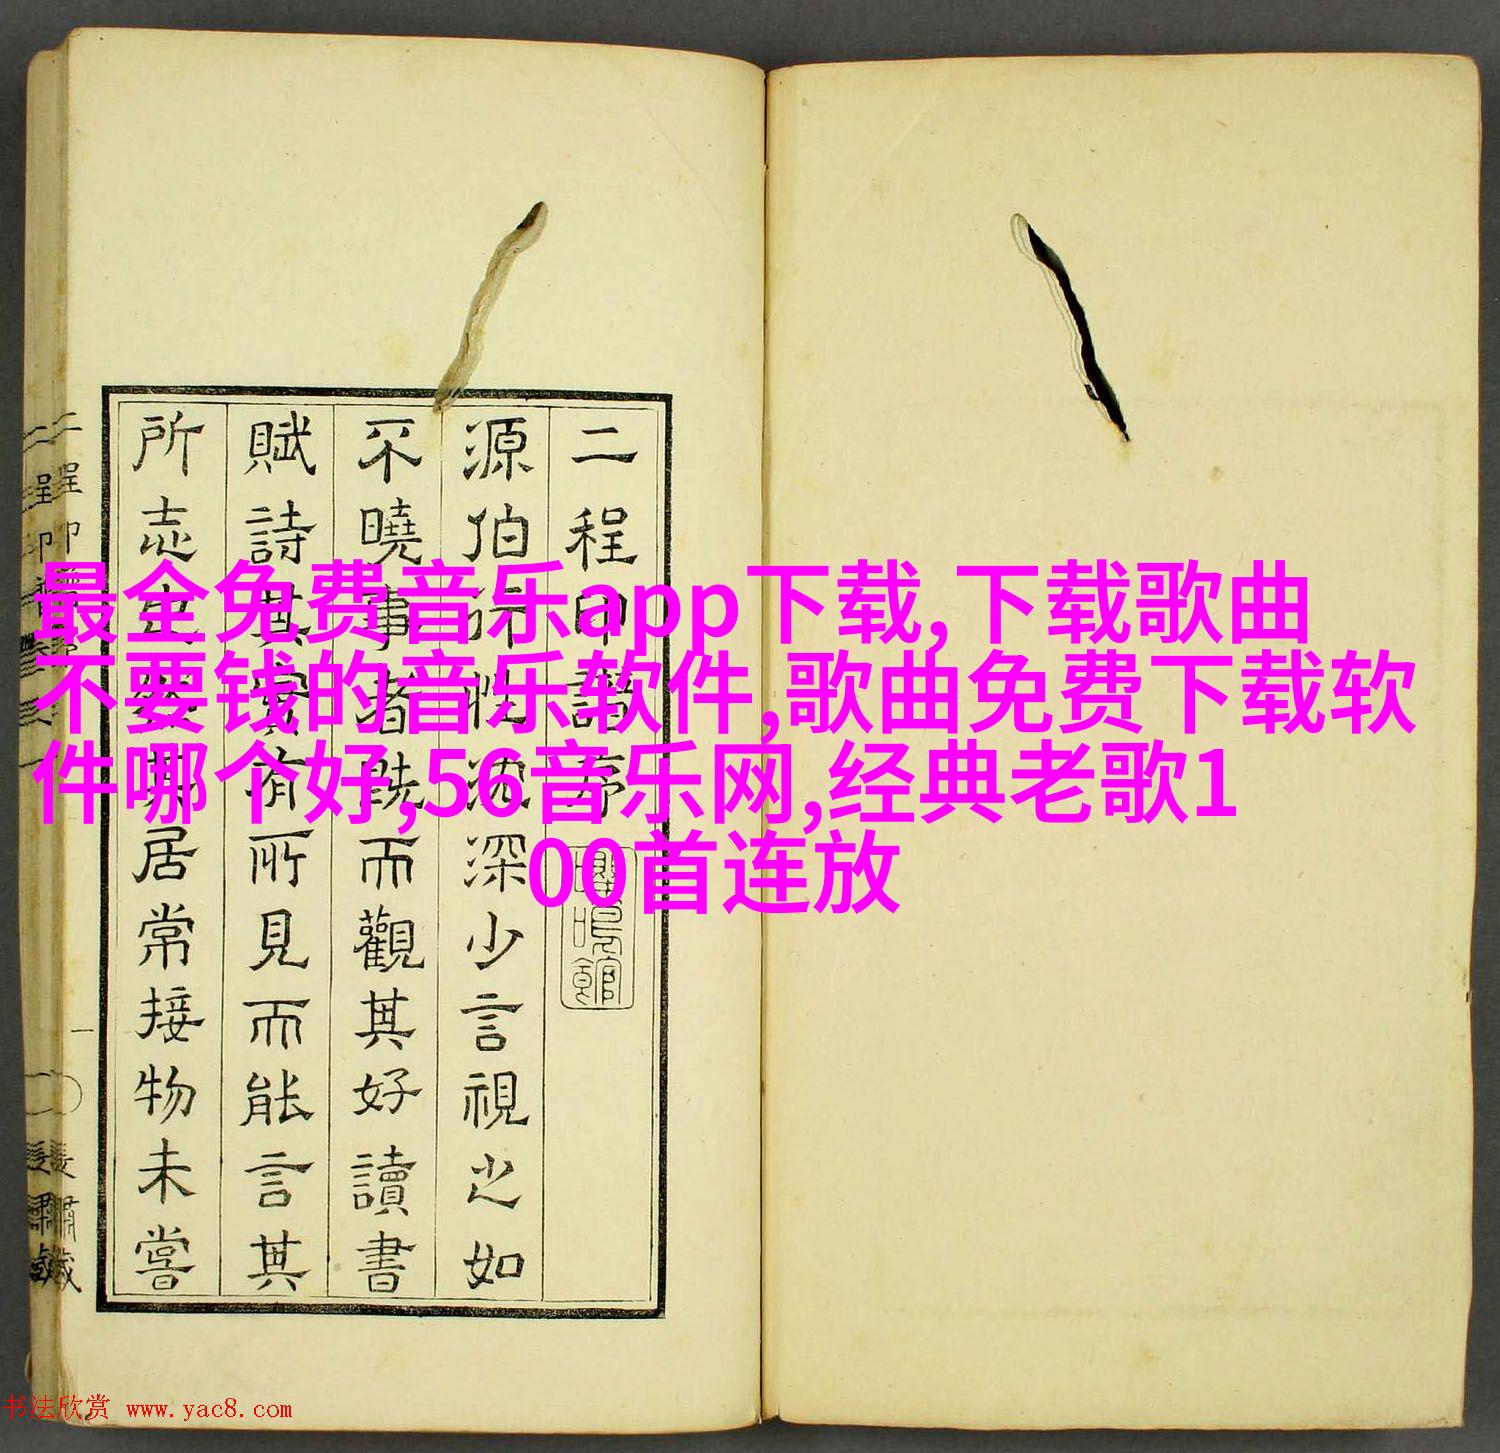 最全免费音乐app下载,下载歌曲
不要钱的音乐软件,歌曲免费下载软
件哪个好,56音乐网,经典老歌1
00首连放
二程印譜序
源伯行性沈深少言視之如
不曉事者跣而觀其好讀書
賦詩其實有所見而能言其
所志其居常接物未嘗
書法欣赏 www.yac8.com